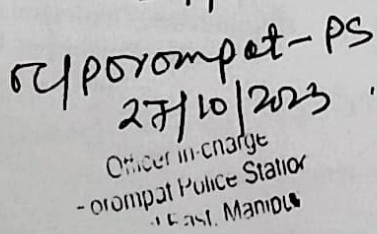 OC/Porompat-PS
27/10/2023
Officer in-charge
-orompat Police Station
East, Manipur